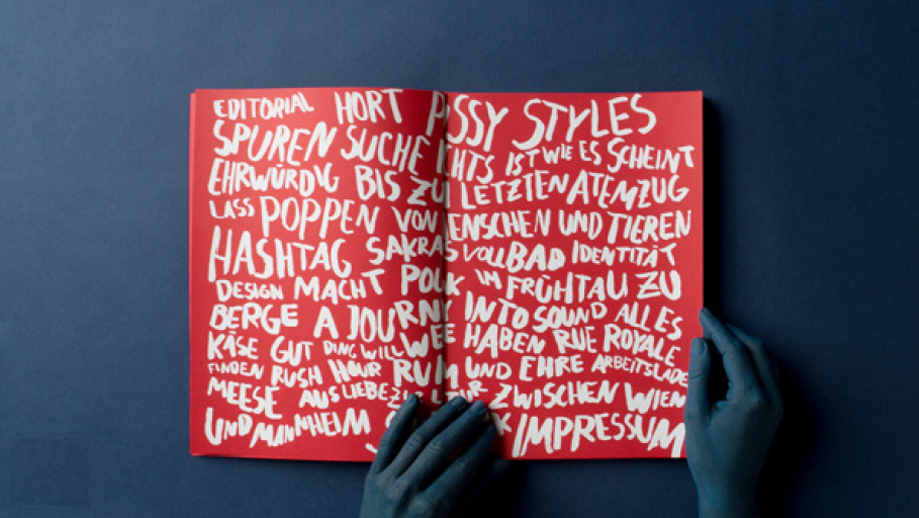 EDITORIAL HORT PUSSY STYLES
SPUREN SUCHE ICHTS IST WIE ES SCHEINT
EHRWÜRDIG BIS ZU LETZTEN ATEMZUG
LASS POPPEN VON MENSCHEN UND TIEREN
HASHTAG SAKRAS VOLLBAD IDENTITÄT
DESIGN MACHT IM FRÜHTAU ZU
BERGE A JOURNY INTO SOUND ALLES
KÄSE GUT DING WILL WEE HABEN RUE ROYALE
FINDEN RUSH HOUR RUM UND EHRE ARBEITSLADE
MEESE AUS LIEBE ZUR ZWISCHEN WIEN
UND MANNHEIM IMPRESSUM